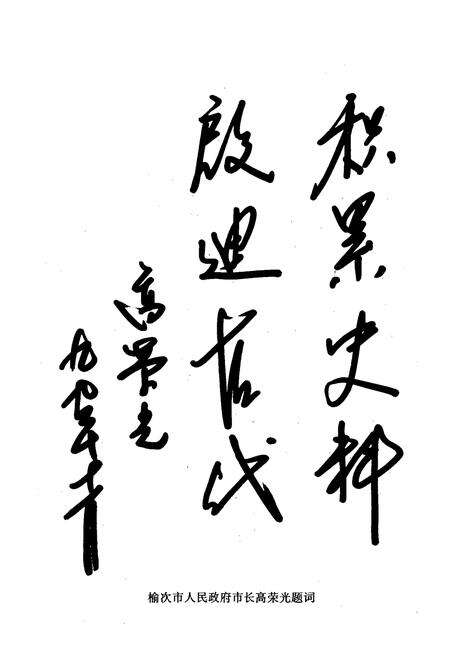 积累史料
啟迪后代
高荣光
榆次市人民政府市长高荣光题词